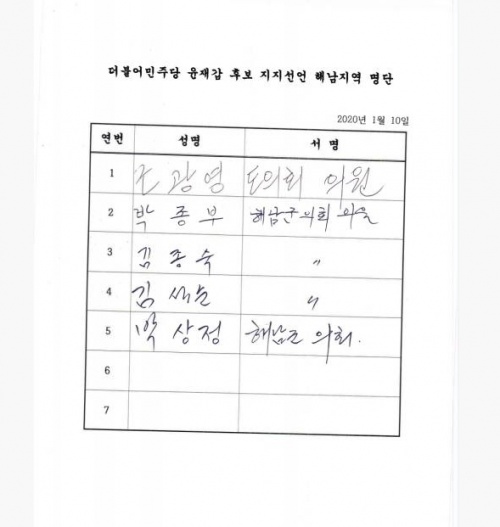 더불어민주당 윤재갑 후보 지지선언 해남지역 명단
2020년 1월 10일
연번 성명 서명
1 조광영 도의회 의원
2 박종부 해남군의회 의원
3 김종숙 〃
4 김석순 〃
5 박상정 해남군 의회.
6
7